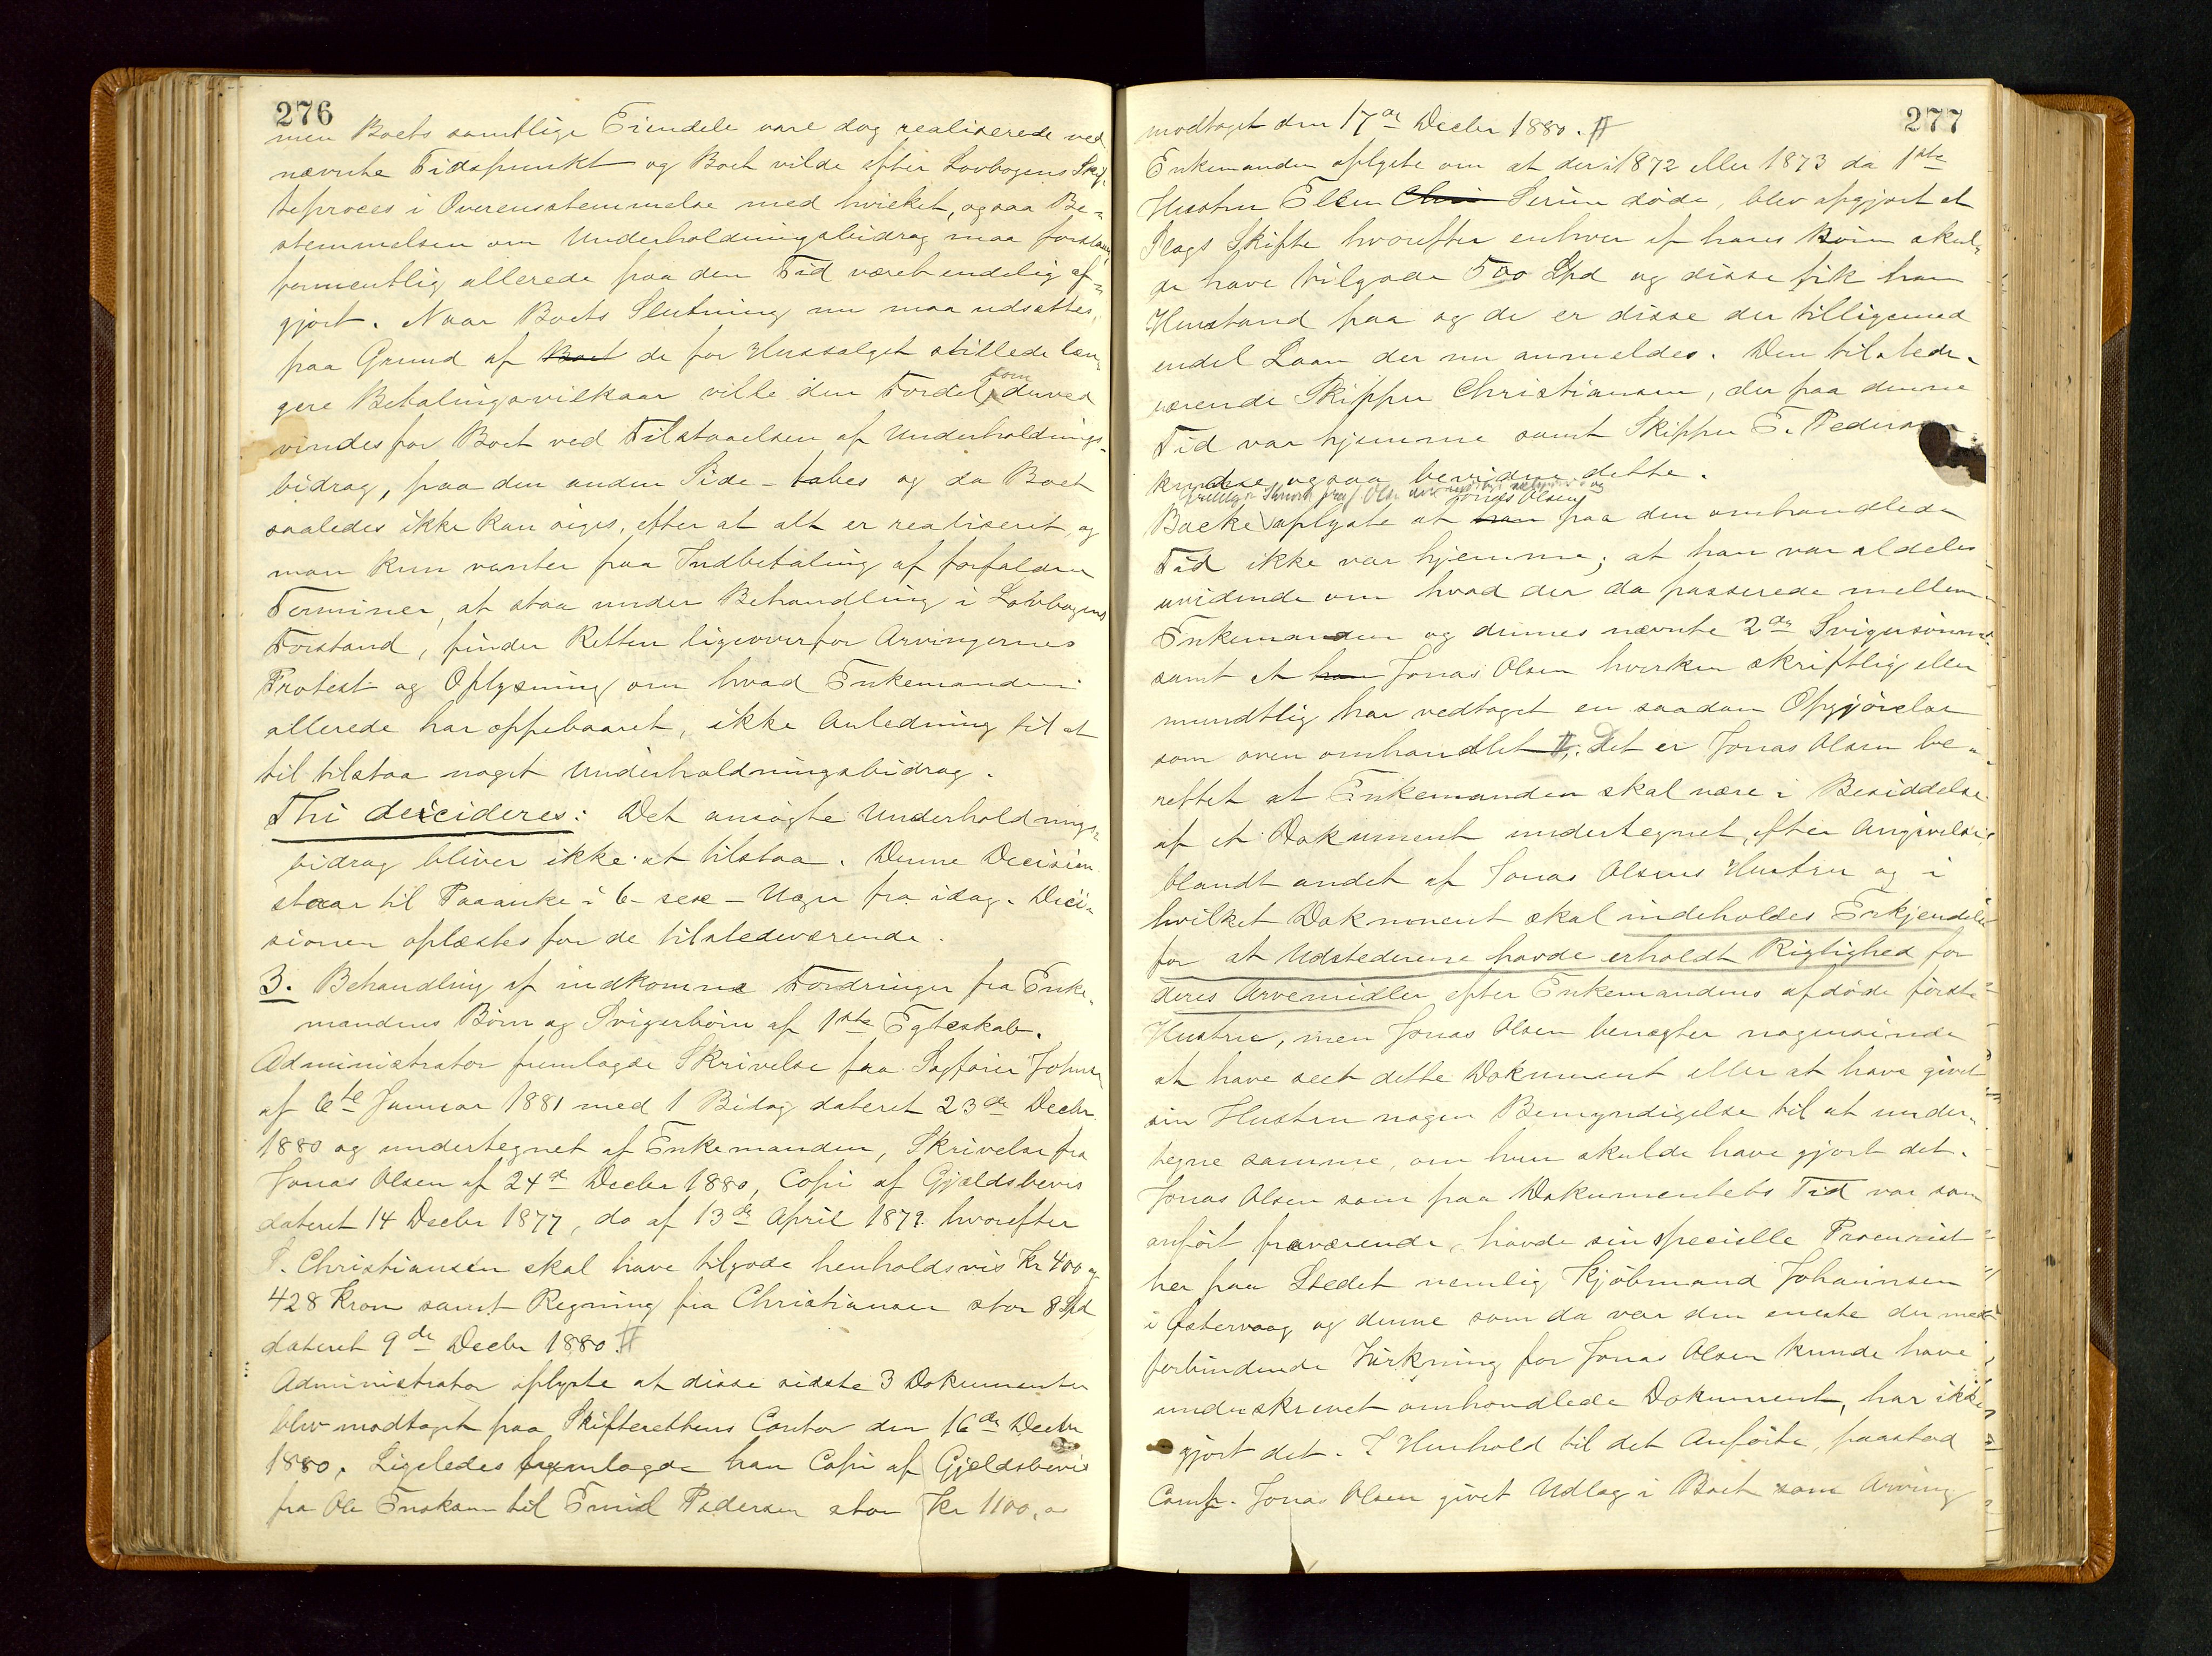 276
men Boets samtlige Eiendele vare dog realiserede ved
nævnte Tidspunkt og Boet vilde efter Lovbogens Skif-
teproces i Overensstemmelse med hvilket, ogsaa Be-
stemmelsen om Underholdningsbidrag maa forstaaes,
formentlig allerede paa den Tid været endelig af-
gjort. Naar Boets Slutning nu maa udsættes,
paa Grund af Boet de for Hussalget stillede læn-
gere Betalingsvilkaar vilde den Fordel, som derved
vindes for Boet ved Tilstaaelsen af Underholdnings-
bidrag, paa den anden Side - tabes og da Boet
saaledes ikke kan siges, efter at alt er realiseret, og
man kun venter paa Indbetaling af forfaldne
Terminer, at staa under Behandling i Lovbogens
Forstand, finder Retten ligeoverfor Arvingernes
Protest og Oplysning om hvad Enkemanden
allerede har oppebaaret, ikke Anledning til at
til tilstaa noget Underholdningsbidrag.
Thi decideres: Det ansøgte Underholdnings-
bidrag bliver ikke at tilstaa. Denne Decision
staar til Paaanke i 6 - sex - Uger fra idag. Deci-
sionen oplæstes for de tilstedeværende.
3. Behandling af indkomne Fordringer fra Enke-
mandens Børn og Svigerbørn af 1ste Egteskab.
Administrator fremlagde Skrivelse fra Sagfører Johnsen
af 6te Januar 1881 med 1 Bilag dateret 23de Decbr
1880 og undertegnet af Enkemanden, Skrivelse fra
Jonas Olsen af 24de Decbr 1880, Copi af Gjældsbevis
dateret 14 Decbr 1877, do af 13de April 1879 hvorefter
P. Christiansen skal have tilgode henholdsvis Kr 400 og
428 Kroner samt Regning fra Christiansen stor 8 Spd
dateret 9de Decbr 1880 #
Administrator oplyste at disse sidste 3 Dokumenter
blev modtaget paa Skifterettens Contor den 16de Decbr
1880. Ligeledes fremlagde han Copi af Gjeldsbevis
fra Ole til Emil Pedersen stor Kr 1100,
277
modtaget den 17de Decbr 1880. #
Enkemanden oplyste om at der i 1872 eller 1873 da 1ste
Hustru Ellen Chri Serine døde, blev afgjort et
Slags Skifte hvorefter enhver af hans Børn skul-
de have tilgode 500 Spd og disse fik han
Henstand paa og de er disse der tilligemed
endel Laan der nu anmeldes. Den tilstede-
værende Skipper Christiansen, der paa denne
Tid var hjemme samt Skipper E. Pedersen
kunde ogsaa bevidne dette.
Backe oplyste at han Jonas Olsen paa den omhandlede
Tid ikke var hjemme; at han var aldeles
uvidende om hvad der da passerede mellem
Enkemanden og dennes nævnte 2de Svigersønner
samt at han Jonas Olsen hverken skriftlig eller
mundtlig har vedtaget en saadan Opgjørelse
som oven omhandlet #. Det er Jonas Olsen be-
rettet at Enkemanden skal være i Besiddelse
af et Dokument undertegnet, efter Angivelse,
blandt andet af Jonas Olsens Hustru og i
hvilket Dokument skal indeholdes Erkjendelse
for at Udstederene havde erholdt Rigtighed for
deres Arvemidler efter Enkemandens afdøde første
Hustru, men Jonas Olsen benægter nogensinde
at have seet dette Dokument eller at have givet
sin Hustru nogen Bemyndigelse til at under-
tegne samme, om hun skulde have gjort det.
Jonas Olsen som paa Dokumentets Tid var som
anført fraværende, havde sin specielle Procurist
her paa Stedet nemlig Kjøbmand Johannsen
i Østervaag og denne som da var den eneste der med
forbindende Virkning for Jonas Olsen kunde have
underskrevet omhandlede Dokument, har ikke
gjort det. I Henhold til det Anførte, paastod
Comp. Jonas Olsen givet Udlæg i Boet som Arving